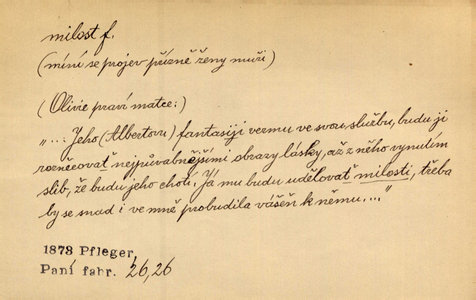 milost f.
(míní se projev přízně ženy muži)
(Olivie praví matce:)
"... Jeho (Albertovu) fantasiji vezmu ve svou službu, budu ji
rozněcovať nejpůvabnějšími obrazy lásky, až z něho vynutím
slib, že budu jeho chotí. Já mu budu udělovať milosti, třeba
by se snad i ve mně probudila vášeň k němu...."
1873 Pfleger,
Paní fabr. 26,26